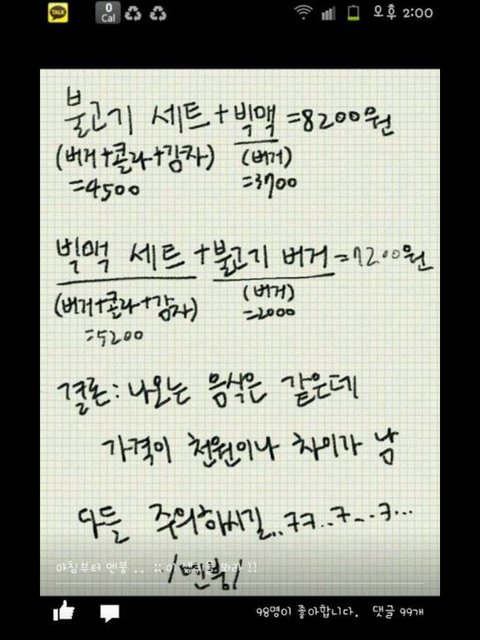 TALK
0
Cal
오후 2:00
불고기 세트 + 빅맥 = 8200원
(버거+콜라+감자) (버거)
=4500 =3700
빅맥 세트 + 불고기 버거 = 7200원
(버거+콜라+감자) (버거)
=5200 =2000
결론: 나오는 음식은 같은데
가격이 천원이나 차이가 남
다들 주의하시길..ㅋㅋ..ㅋ...ㅋ...
아침부터 멘붕 ..
/멘붕/
98명이 좋아합니다. 댓글 99개